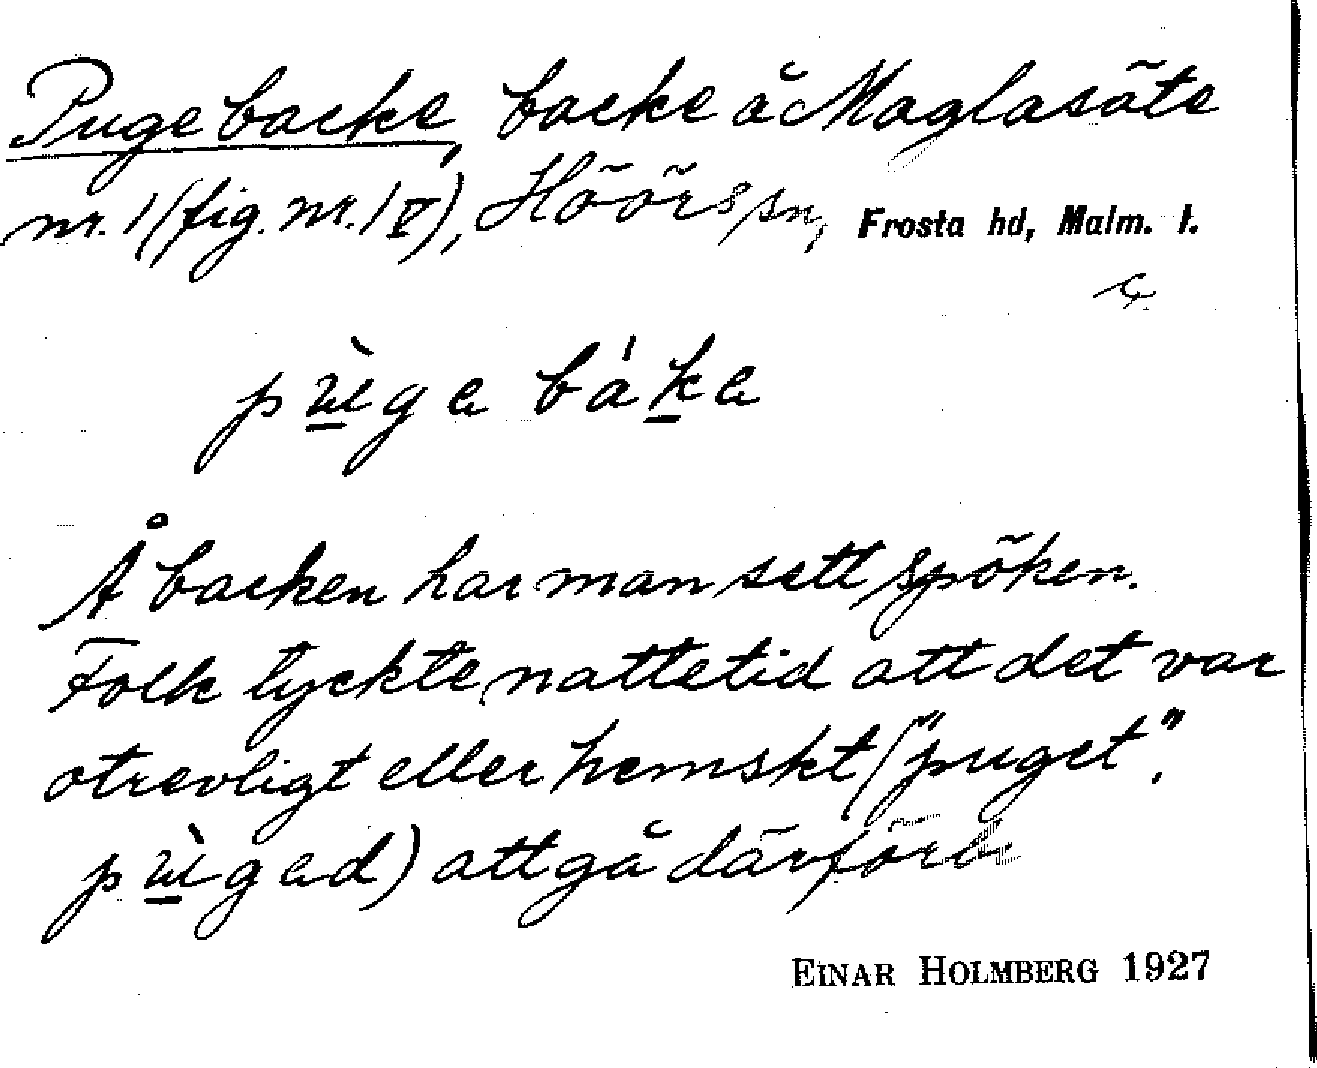 Pugebacke, backe å Maglasäte
nr. 1 (fig. nr. 1 V), Höörs sn, Frosta hd, Malm. l.
pùga báka
Å backen har man sett spöken.
Folk tyckte nattetid att det var
otrevligt eller hemskt ("puget".
pùgad) att gå därförbi
EINAR HOLMBERG 1927